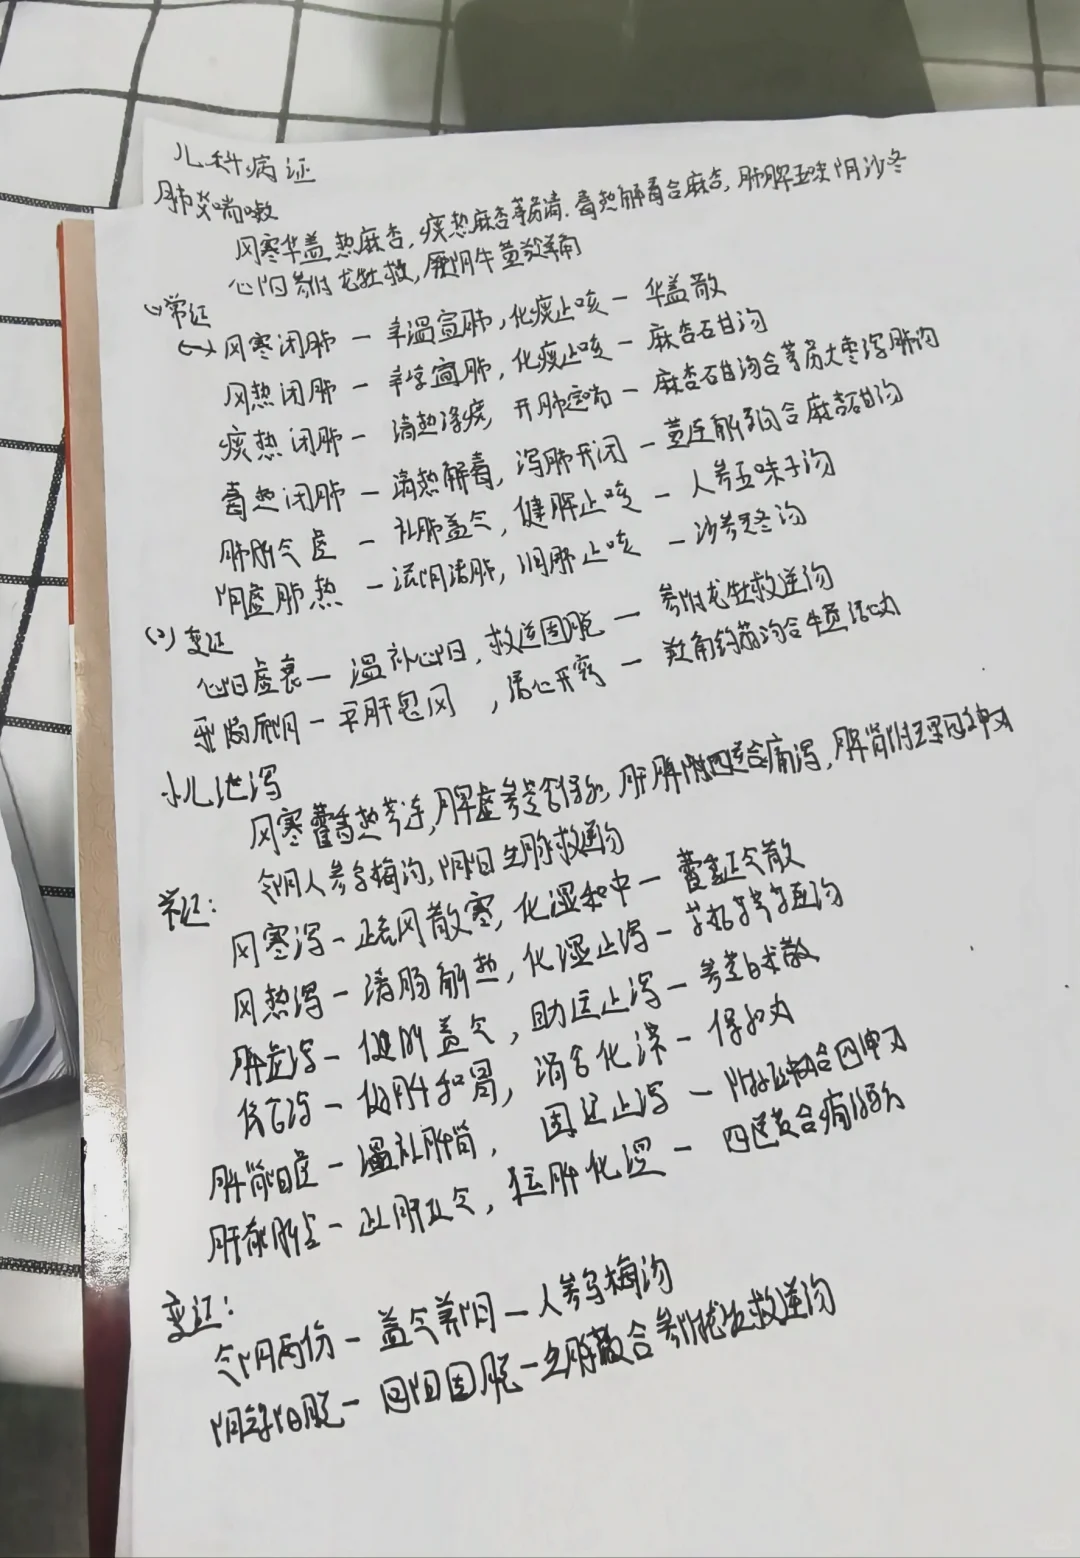 儿科病证
肺炎喘嗽
风寒华盖热麻杏，痰热麻杏葶苈清，毒热解毒合麻杏，肺脾五味阴沙冬
心阳参附龙牡救，厥阴牛黄羚角
(1)常证
风寒闭肺 — 辛温宣肺，化痰止咳 — 华盖散
风热闭肺 — 辛凉宣肺，化痰止咳 — 麻杏石甘汤
痰热闭肺 — 清热涤痰，开肺定喘 — 麻杏石甘汤合葶苈大枣泻肺汤
毒热闭肺 — 清热解毒，泻肺开闭 — 黄连解毒汤合麻杏石甘汤
肺脾气虚 — 补肺益气，健脾止咳 — 人参五味子汤
阴虚肺热 — 滋阴清肺，润肺止咳 — 沙参麦冬汤
(2)变证
心阳虚衰 — 温补心阳，救逆固脱 — 参附龙牡救逆汤
邪陷厥阴 — 平肝息风，清心开窍 — 羚角钩藤汤合牛黄清心丸
小儿泄泻
风寒藿香热芩连，脾虚参苓食保和，肝脾四逆合痛泻，脾肾附理四神丸
气阴人参乌梅汤，阴阳生脉救逆汤
常证：
风寒泻 — 疏风散寒，化湿和中 — 藿香正气散
风热泻 — 清肠解热，化湿止泻 — 葛根芩连汤
脾虚泻 — 健脾益气，助运止泻 — 参苓白术散
伤食泻 — 健脾和胃，消食化滞 — 保和丸
脾肾阳虚 — 温补脾肾，固涩止泻 — 附子理中汤合四神丸
肝郁脾虚 — 运脾化湿 — 四逆散合痛泻要方
变证：
气阴两伤 — 益气养阴 — 人参乌梅汤
阴竭阳脱 — 回阳固脱 — 生脉散合参附龙牡救逆汤